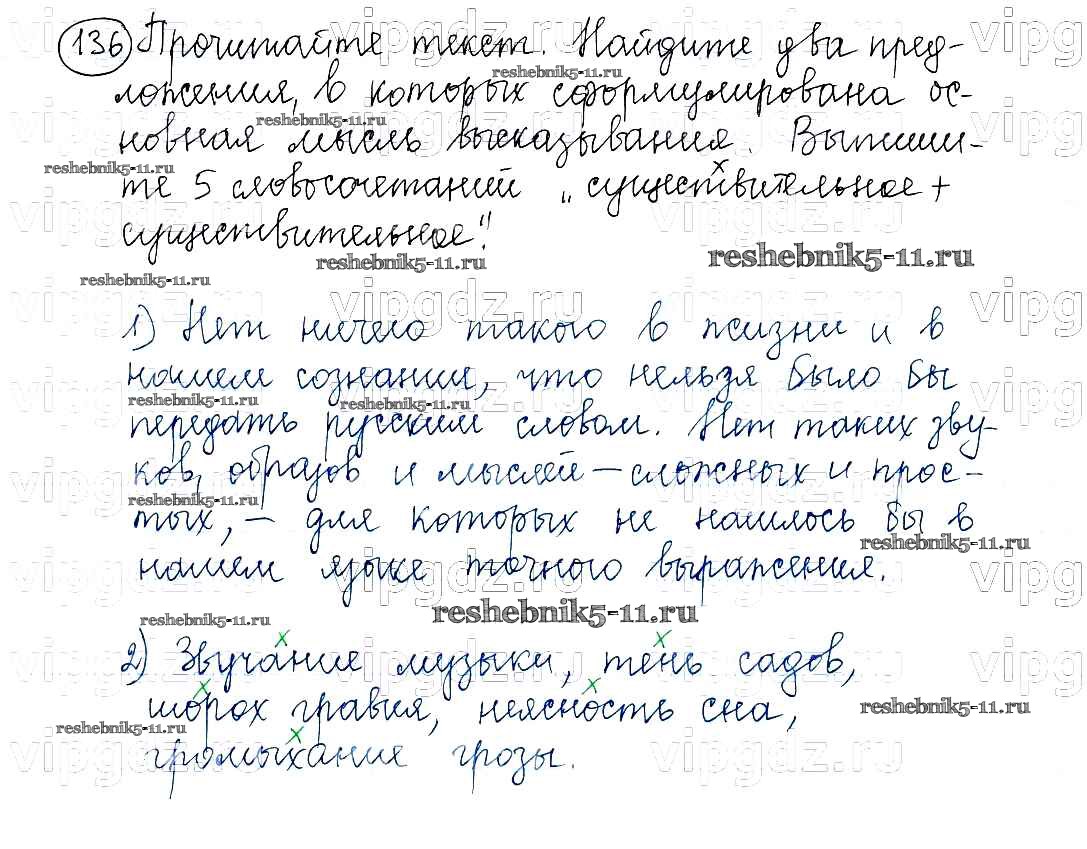 136 Прочитайте текст. Найдите два пред-
ложения, в которых сформулирована ос-
новная мысль высказывания. Выпиши-
те 5 словосочетаний „существительное +
существительное".
1) Нет ничего такого в жизни и в
нашем сознании, что нельзя было бы
передать русским словом. Нет таких зву-
ков, образов и мыслей – сложных и прос-
тых, – для которых не нашлось бы в
нашем языке точного выражения.
2) Звучание музыки, тень садов,
шорох гравия, неясность сна,
громыхание грозы.
reshebnik5-11.ru
vipgdz.ru